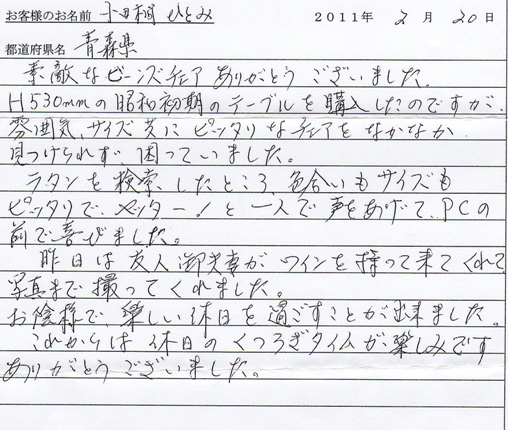 お客様のお名前 小田桐 ひとみ 2011年 2月 20日
都道府県名 青森県
素敵なビーンズチェア ありがとう ございました。
H530mmの昭和初期のテーブルを購入したのですが、
雰囲気、サイズ共に ピッタリなチェアを なかなか
見つけられず、困っていました。
ラタンを検索したところ、色合いもサイズも
ピッタリで、ヤッター！と一人で声をあげて、PCの
前で喜びました。
昨日は友人御夫妻が、ワインを持って来てくれて
写真まで撮ってくれました。
お陰様で、楽しい休日を過ごすことが出来ました。
これからは休日のくつろぎタイムが楽しみです
ありがとうございました。